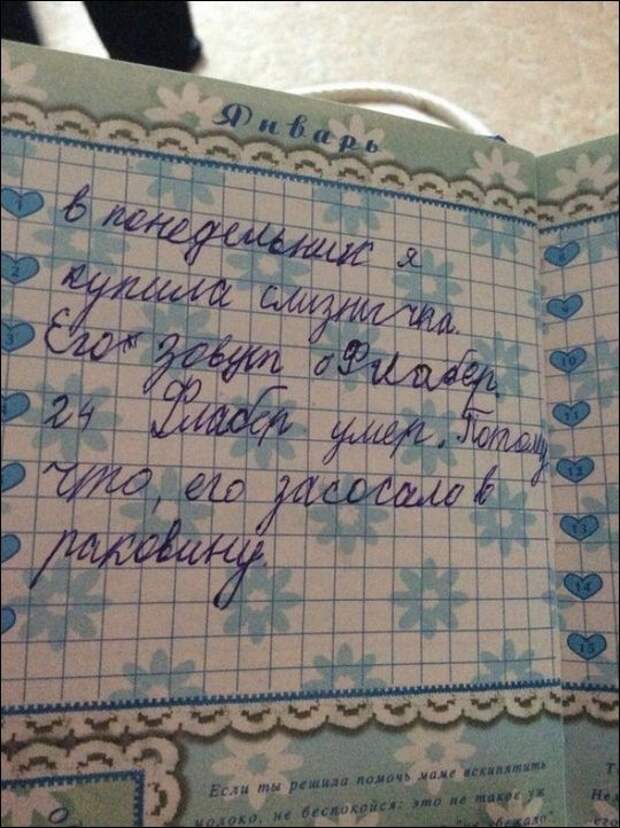 Январь
1
в понедельник я
2
купила слизнычка.
3
Его зовут Флабер.
4
24 Флабер умер. Потому
что, его засосало в
раковину.
8
9
10
11
12
13
14
15
Если ты решила помочь маме вскипятить
молоко, не беспокойся: это не такое уж